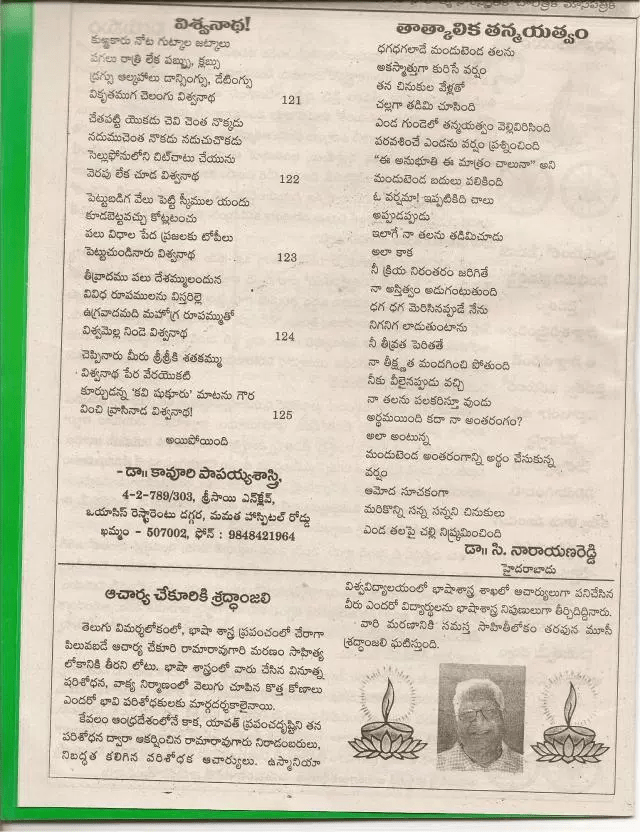 విశ్వనాథ!
కుఱ్ఱకారు నోట గుట్కాల జట్కాలు
పగలు రాత్రి లేక పబ్బు, క్లబ్బు
డ్రగ్సు ఆల్కహాలు డాన్సింగ్సు, డేటింగ్సు
వికృతముగ చెలంగు విశ్వనాథ 121
చేతపట్టి యొకడు చెవి చెంత నొక్కడు
నడుముచెంత నొకడు నడుచుచొకడు
సెల్లుఫోనులోని చిట్‌చాటు చేయును
వెరపు లేక చూడ విశ్వనాథ 122
పెట్టుబడిగ వేలు పెట్టి స్కీముల యందు
కూడబెట్టవచ్చు కోట్లటంచు
పలు విధాల పేద ప్రజలకు టోపీలు
పెట్టుచుండినారు విశ్వనాథ 123
తీవ్రాదము పలు దేశమ్ములందున
వివిధ రూపములను విస్తరిల్లె
ఉగ్రవాదమది మహోగ్ర రూపమ్ముతో
విశ్వమెల్ల నిండె విశ్వనాథ 124
చెప్పినారు మీరు శ్రీశ్రీకి శతకమ్ము
విశ్వనాథ పేర వేరయొకటి
కూర్చుడన్న 'కవి షుకూరు' మాటను గౌర
వించి వ్రాసినాడ విశ్వనాథ! 125
అయిపోయింది
- డా॥ కావూరి పాపయ్యశాస్త్రి,
4-2-789/303, శ్రీసాయి ఎన్‌క్లేవ్,
ఒయాసిస్ రెస్టారెంటు దగ్గర, మమత హాస్పిటల్ రోడ్డు
ఖమ్మం - 507002, ఫోన్ : 9848421964
తాత్కాలిక తన్మయత్వం
ధగధగలాడే మండుటెండ తలను
అకస్మాత్తుగా కురిసే వర్షం
తన చినుకుల వేళ్లతో
చల్లగా తడిమి చూసింది
ఎండ గుండెలో తన్మయత్వం వెల్లివిరిసింది
పరవశించే ఎండను వర్షం ప్రశ్నించింది
"ఈ అనుభూతి ఈ మాత్రం చాలునా" అని
మండుటెండ బదులు పలికింది
ఓ వర్షమా! ఇప్పటికిది చాలు
అప్పుడప్పుడు
ఇలాగే నా తలను తడిమిచూడు
అలా కాక
నీ క్రియ నిరంతరం జరిగితే
నా అస్తిత్వం అడుగంటుతుంది
ధగ ధగ మెరిసినప్పుడే నేను
నిగనిగ లాడుతుంటాను
నీ తీవ్రత పెరితతే
నా తీక్ష్ణత మందగించి పోతుంది
నీకు వీలైనప్పుడు వచ్చి
నా తలను పలకరిస్తూ వుండు
అర్థమయింది కదా నా అంతరంగం?
అలా అంటున్న
మండుటెండ అంతరంగాన్ని అర్థం చేసుకున్న
వర్షం
ఆమోద సూచకంగా
మరికొన్ని సన్న సన్నని చినుకులు
ఎండ తలపై చల్లి నిష్క్రమించింది
డా॥ సి. నారాయణరెడ్డి
హైదరాబాదు
ఆచార్య చేకూరికి శ్రద్ధాంజలి
తెలుగు విమర్శలోకంలో, భాషా శాస్త్ర ప్రపంచంలో చేరాగా
పిలువబడే ఆచార్య చేకూరి రామారావుగారి మరణం సాహిత్య
లోకానికి తీరని లోటు. భాషా శాస్త్రంలో వారు చేసిన వినూత్న
పరిశోధన, వాక్య నిర్మాణంలో వెలుగు చూపిన కొత్త కోణాలు
ఎందరో భావి పరిశోధకులకు మార్గదర్శకాలైనాయి.
కేవలం ఆంధ్రదేశంలోనే కాక, యావత్ ప్రపంచదృష్టిని తన
పరిశోధన ద్వారా ఆకర్షించిన రామారావుగారు నిరాడంబరులు,
నిబద్ధత కలిగిన వరిశోధక ఆచార్యులు. ఉస్మానియా
విశ్వవిద్యాలయంలో భాషాశాస్త్ర శాఖలో ఆచార్యులుగా పనిచేసిన
వీరు ఎందరో విద్యార్థులను భాషాశాస్త్ర నిపుణులుగా తీర్చిదిద్దినారు.
వారి మరణానికి సమస్త సాహితీలోకం తరఫున మూసీ
శ్రద్ధాంజలి ఘటిస్తుంది.